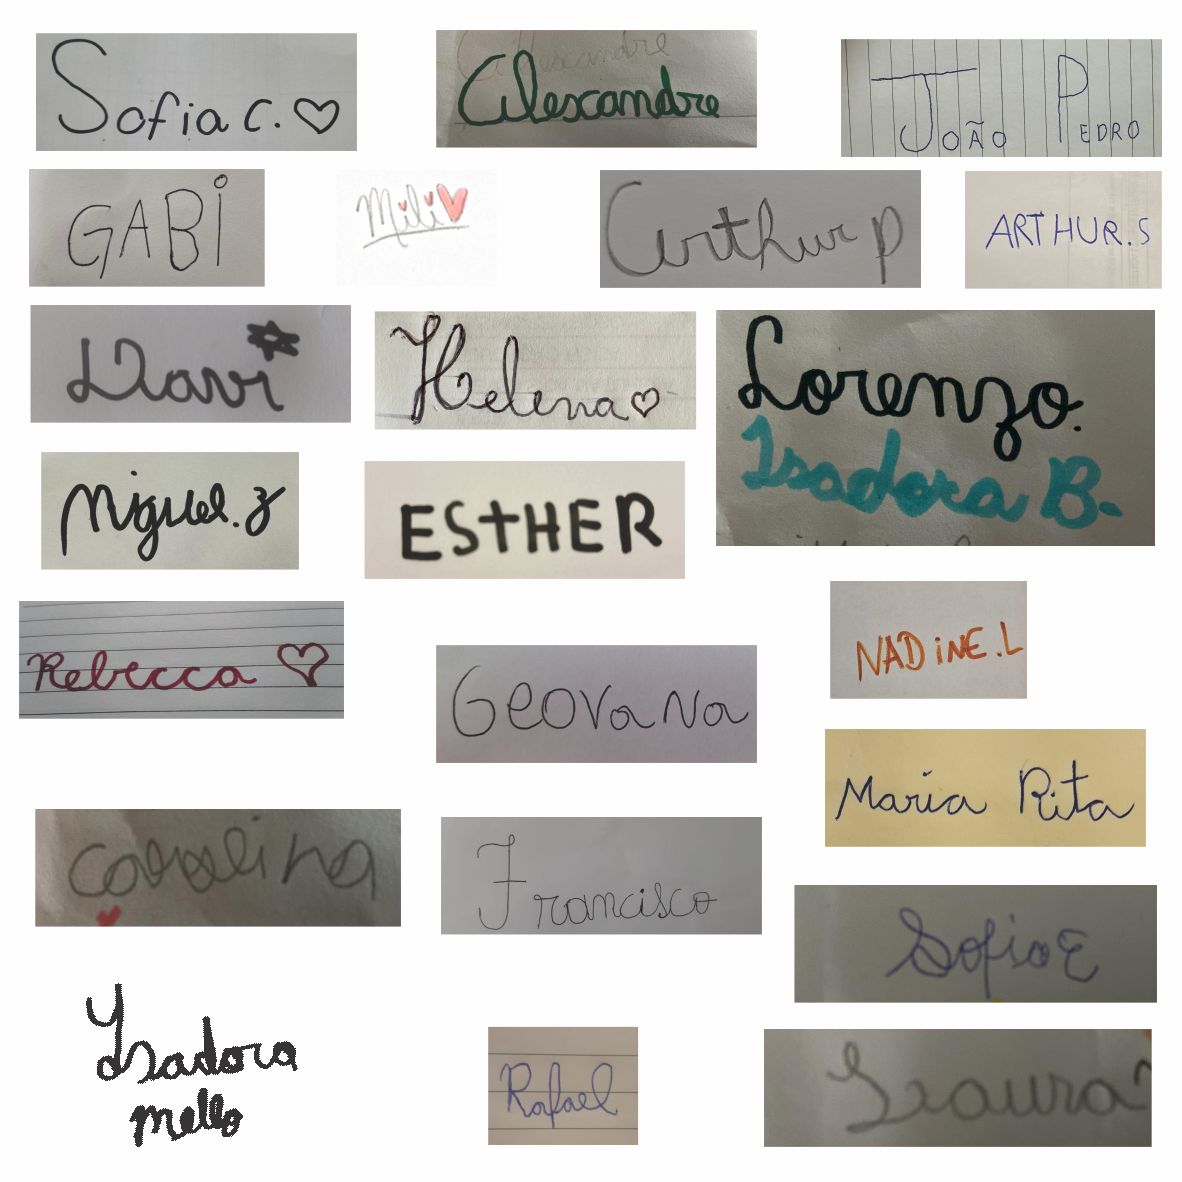 Sofia C.
Alescandre
Alescandre
João Pedro
GABi
Mili
Arthur p
ARTHUR.S
Davi
Helena
Lorenzo.
Isadora B.
Miguel.z
ESTHER
Rebecca
NADiNE.L
Geovana
Maria Rita
Carolina
Francisco
Sofia E
Isadora
mello
Rafael